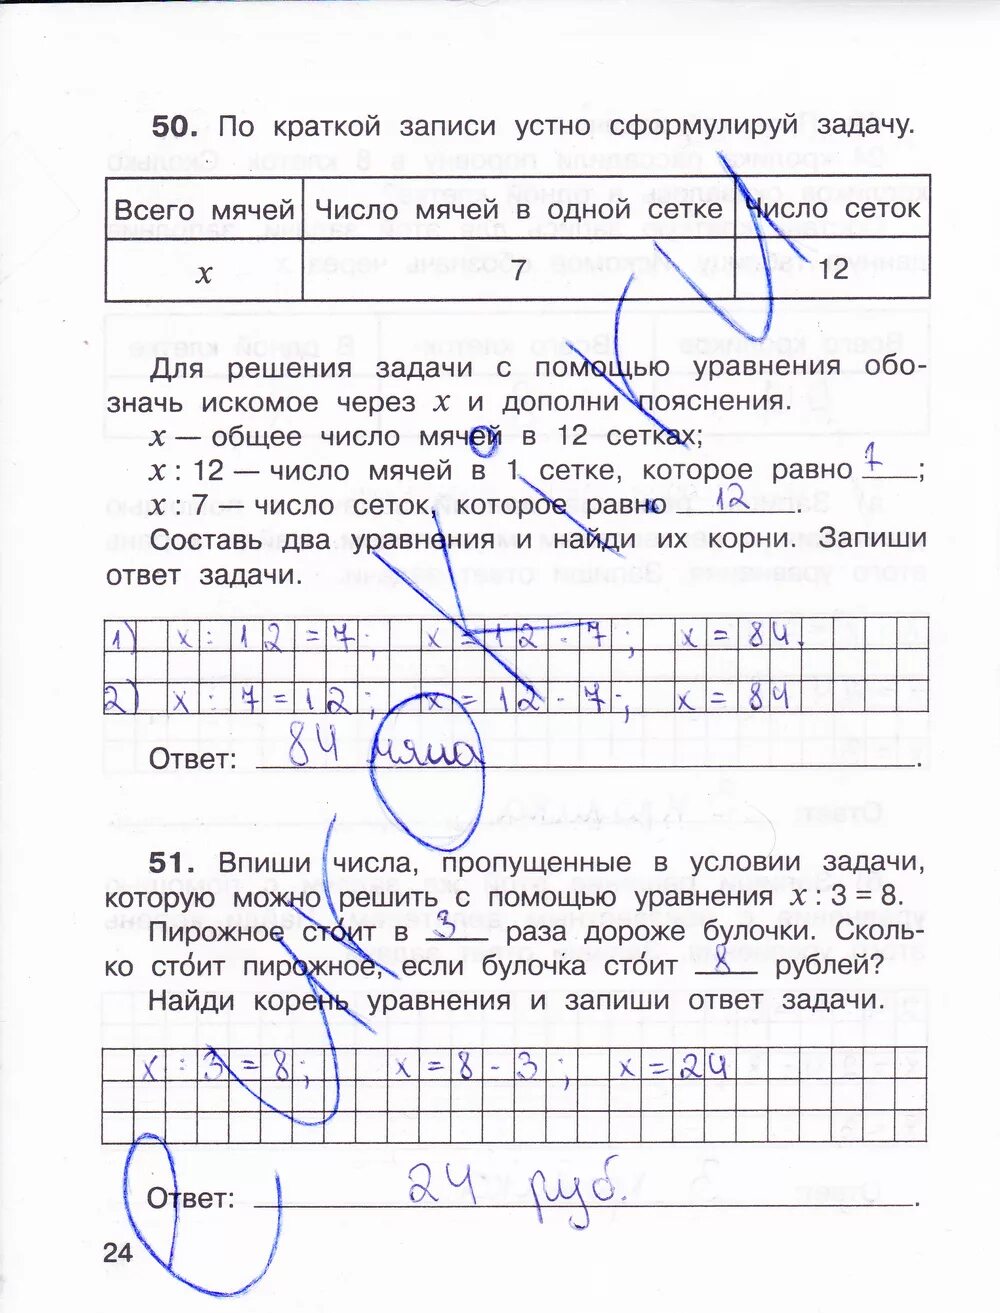 50. По краткой записи устно сформулируй задачу.
Всего мячей Число мячей в одной сетке Число сеток
x 7 12
Для решения задачи с помощью уравнения обо-
значь искомое через x и дополни пояснения.
x — общее число мячей в 12 сетках;
x : 12 — число мячей в 1 сетке, которое равно 7;
x : 7 — число сеток, которое равно 12.
Составь два уравнения и найди их корни. Запиши
ответ задачи.
1) x : 12 = 7; x = 12 · 7; x = 84.
2) x : 7 = 12; x = 12 · 7; x = 84
Ответ: 84 мяча.
51. Впиши числа, пропущенные в условии задачи,
которую можно решить с помощью уравнения x : 3 = 8.
Пирожное сто́ит в 3 раза дороже булочки. Сколь-
ко сто́ит пирожное, если булочка сто́ит 8 рублей?
Найди корень уравнения и запиши ответ задачи.
x : 3 = 8; x = 8 · 3; x = 24
Ответ: 24 руб.
24